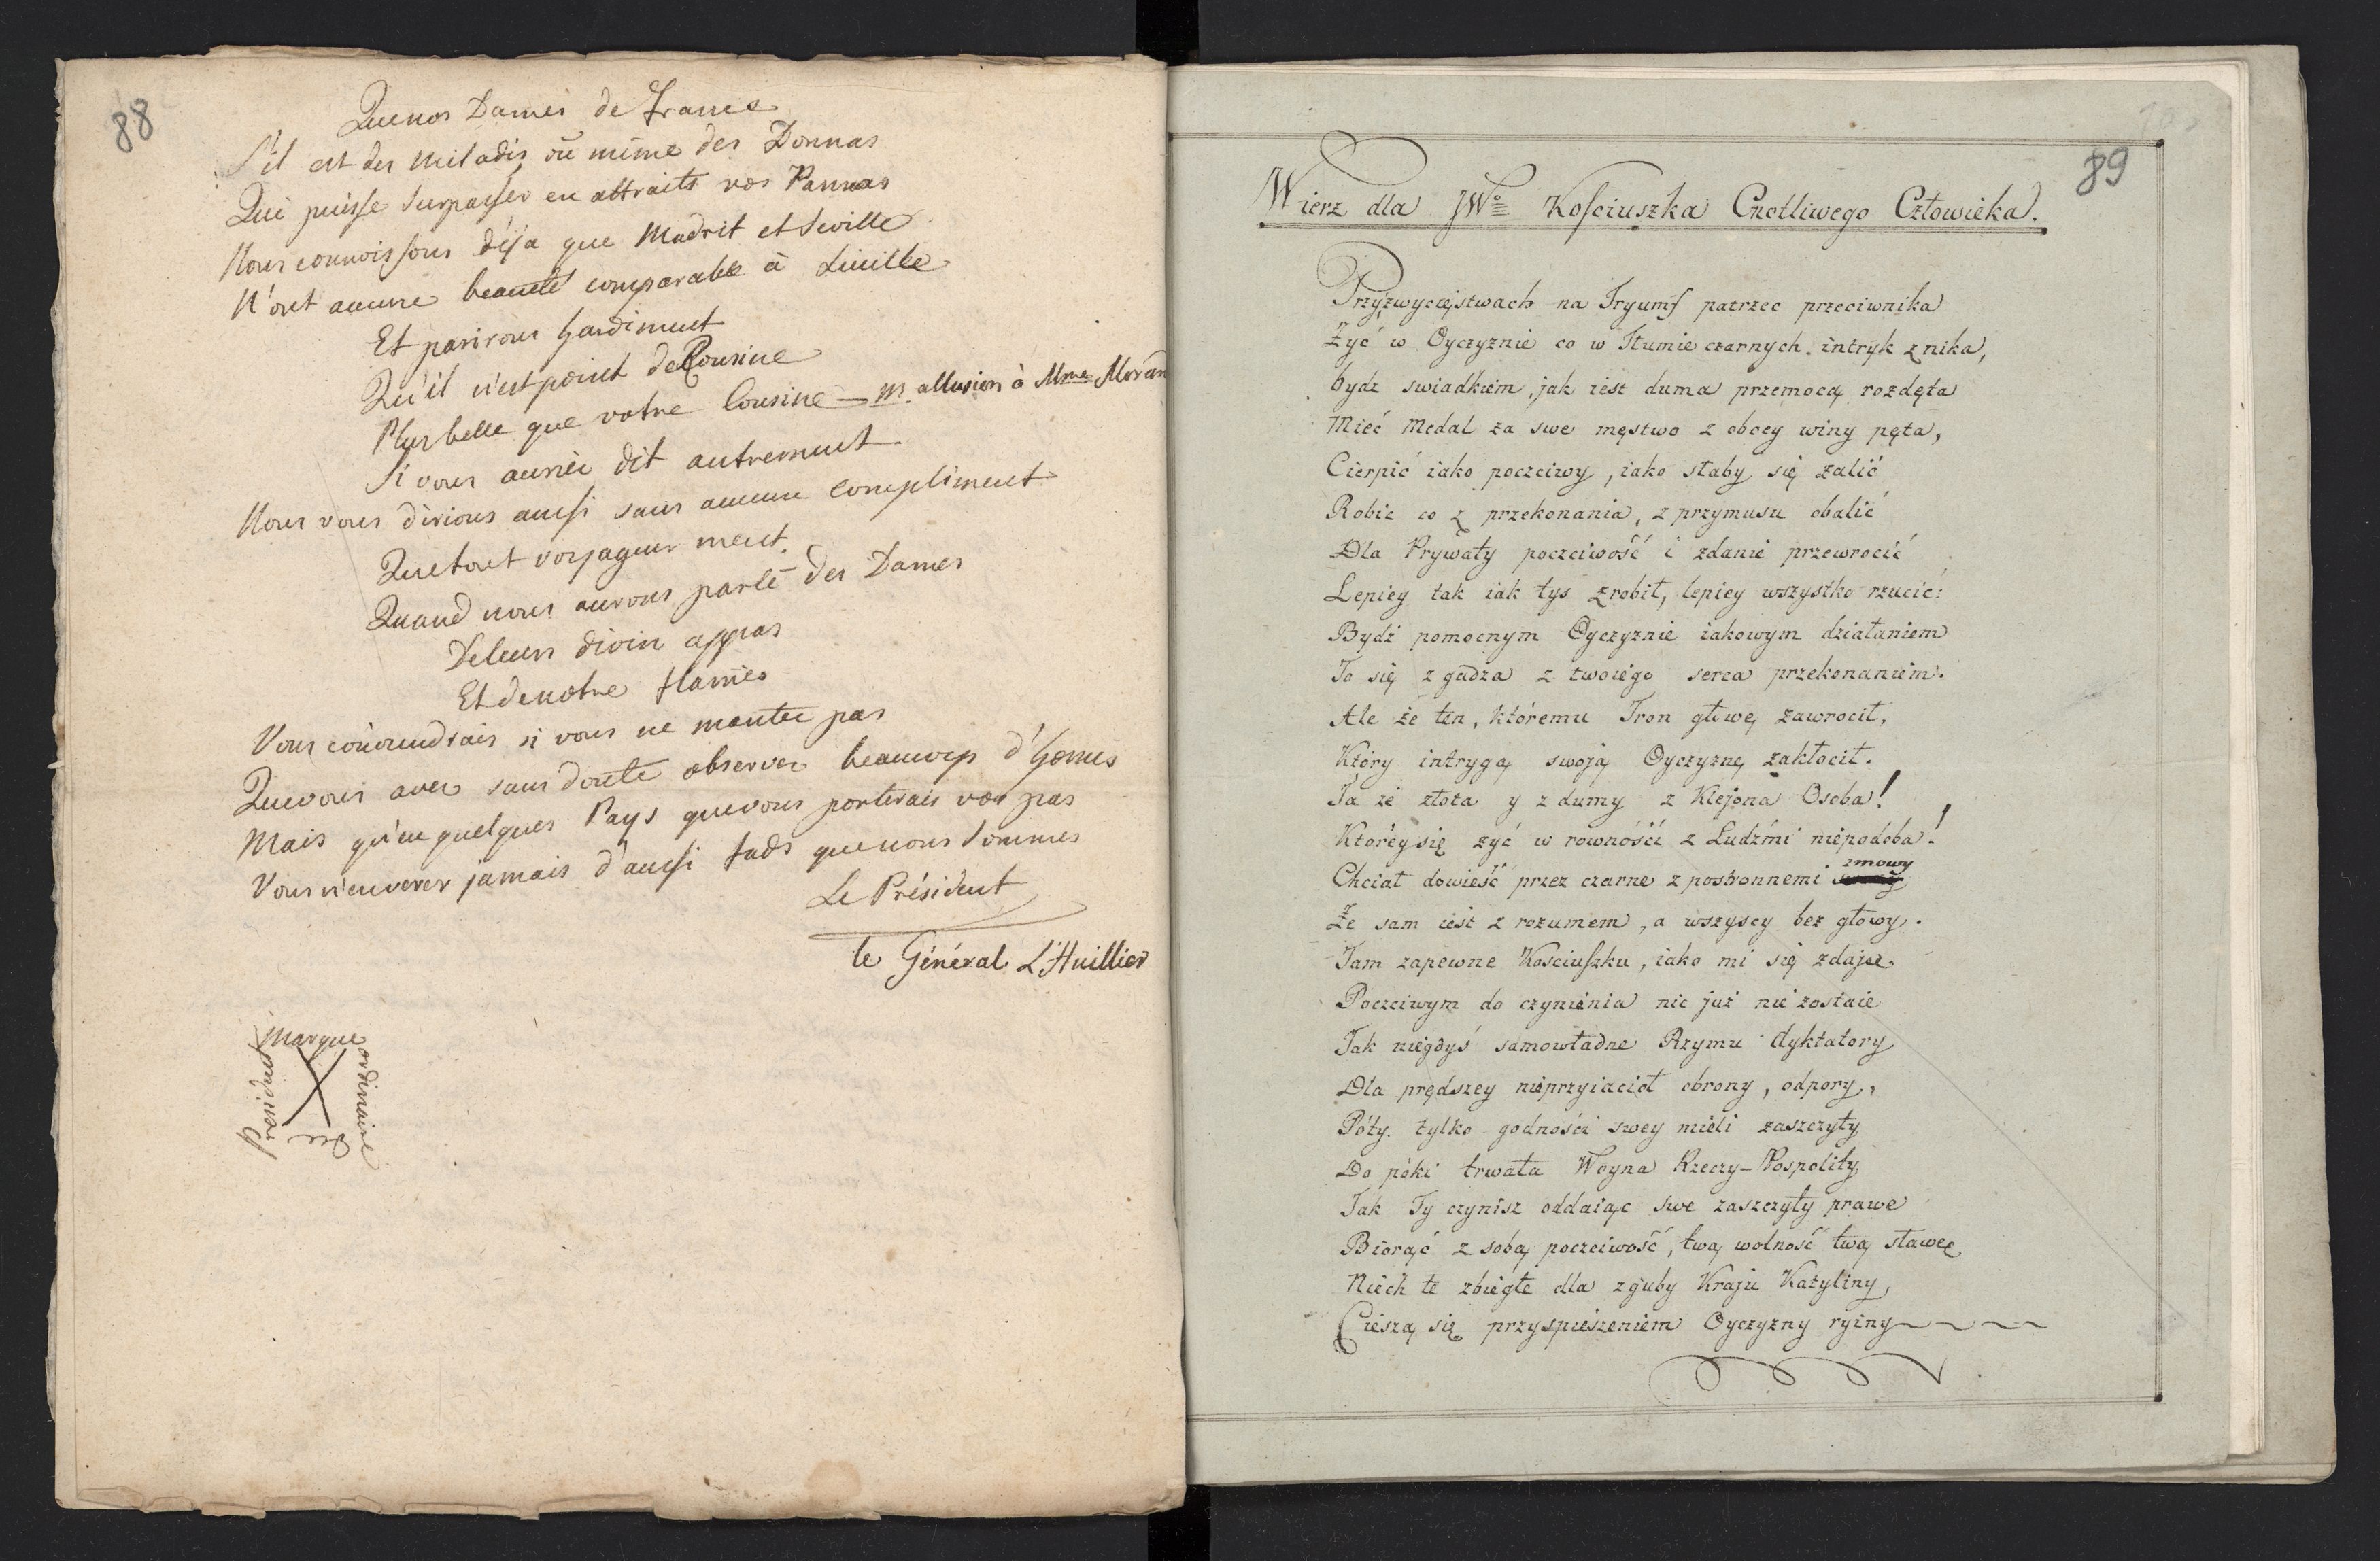 88
Quenos Dames de France
S'il est des miladis où même des Donnas
Qui puisse surpasser en attraits vos Pannas
Nous connoissons déja que Madrit et Seville
N'ont aucune beauté comparable à
Et parirons hardiment
Qu'il n'est point de Cousine
Plus belle que votre Cousine — m. allusion à Mme Moran
Si vous auriéz dit autrement
Nous vous dirions aussi sans aucun compliment
Que tout voyageur ment.
Quand nous aurons parlé des Dames
Deleurs divin appas
Et denotre flames
Vous conviendrais si vous ne mentez pas
Quevous avez sans doute observer beaucoup d'homes
Mais qu'en quelques Pays quevous porterais vos pas
Vous n'enverez jamais d'aussi fads que nous sommes
Le Président
le Général L'Huillier
Marque
ordinaire
du
President
89
Wierz dla JWo Kosciuszka Cnotliwego Człowieka.
Przyzwyciejstwach na Tryumf patrzec przeciwnika
Żyć w Oyczyznie co w Tłumie czarnych intryk znika,
bydz swiadkiem, jak iest duma przemocą rozdęta
Mieć Medal za swe męstwo z obcey winy pęta,
Cierpić iako poczciwy, iako słaby się żalić
Robic co z przekonania, z przymusu obalić
Dla Prywaty poczciwość i zdanie przewrocić
Lepiey tak iak tys zrobił, lepiey wszystko rzucić:
Bydź pomocnym Oyczyznie iakowym działaniem
To się zgadza z twoiego serca przekonaniem.
Ale że ten, któremu Tron głowę zawrocił,
Który intrygą swoją Oyczyznę zakłocił.
Ta ze złota y z dumy z Klejona Osoba!
Którey się zyć w rowności z Ludźmi niepodoba!
Chciał dowieść przez czarne z postronnemi zmowy
Że sam iest z rozumem, a wszyscy bez głowy.
Tam zapewne Kosciuszku, iako mi się zdaje
Poczciwym do czynienia nic już nie zostaie
Tak niegdyś samowładne Rzymu dyktatory
Dla prędszey nieprzyiacioł obrony, odpory,
Póty tylko godności swey mieli zaszczyty
Do póki trwała Woyna Rzeczy-Pospolity
Tak Ty czynisz oddaiąc swe zaszczyty prawe
Biorąć z sobą poczciwość, twą wolność twą sławę
Niech te zbiegłe dla zguby Kraju Katyliny,
Cieszą się przyspieszeniem Oyczyzny ryiny